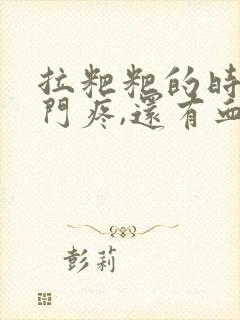 拉粑粑的時
門疼,還有血
彭莉